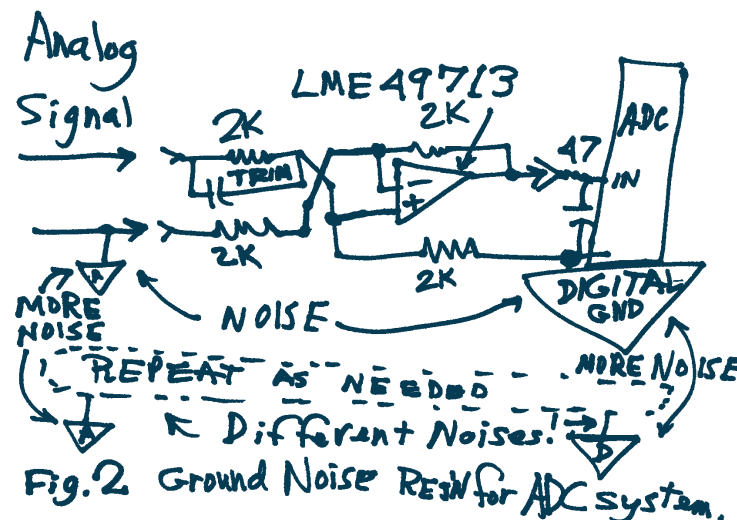 Analog
Signal
LME 49713
2K
TRIM
2K
2K
2K
47
ADC
IN
+
−
A
DIGITAL
GND
NOISE
MORE
NOISE
MORE NOISE
REPEAT AS NEEDED
A
Different Noises!
D
Fig.2 Ground Noise REJ'N for ADC system.